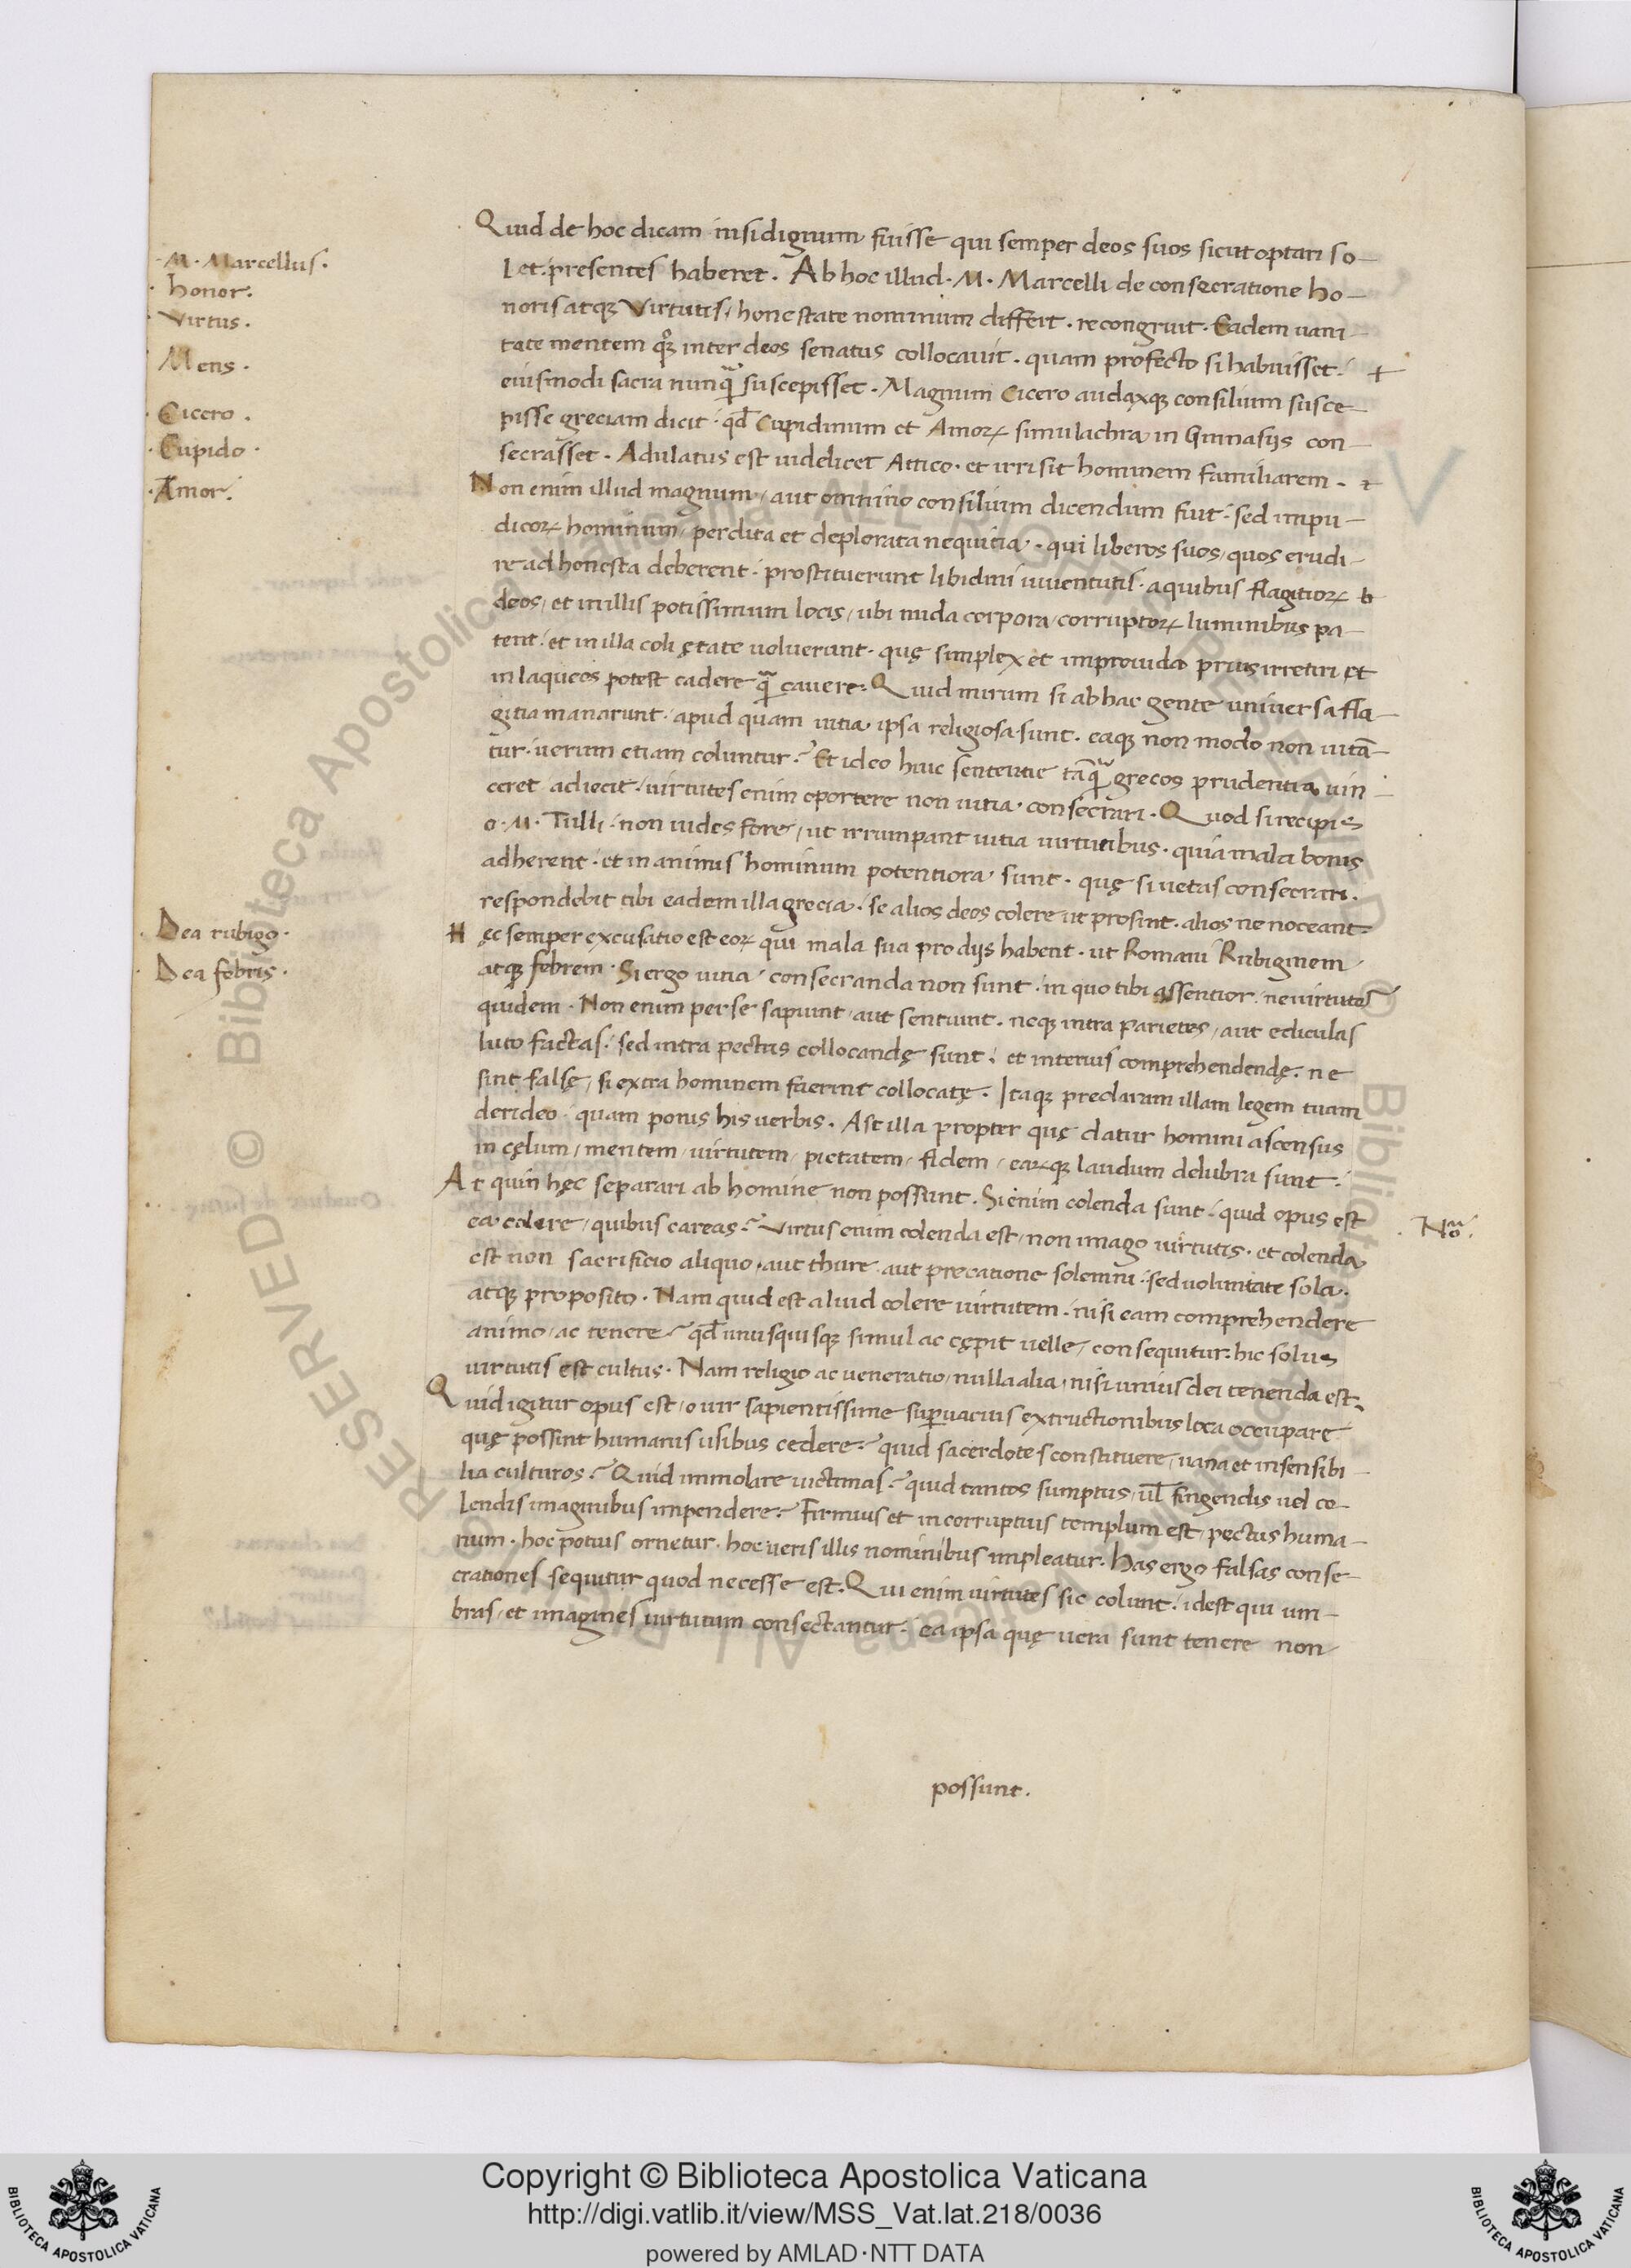 Quid de hoc dicam nisi dignum fuisse qui semper deos suos sicut optari so-
let: presentes haberet. Ab hoc illud. M. Marcelli de consecratione ho-
noris atq; Virtutis, honestate nominum differt. re congruit. Eadem uani-
tate mentem qꝫ inter deos senatus collocavit. quam profecto si habuisset:
eiusmodi sacra nunq̃ suscepisset. Magnum Cicero audaxq; consilium susce-
pisse greciam dicit: qđ Cupidinum et Amoꝝ simulachra in Gimnasijs con-
secrasset. Adulatus est uidelicet Attico. et irrisit hominem familiarem.
Non enim illud magnum, aut omnino consilium dicendum fuit: sed impu-
dicoꝝ hominum, perdita et deplorata nequitia. qui liberos suos, quos erudi-
re ad honesta deberent: prostituerunt libidini iuuentutis. a quibus flagitioꝝ
deos, et in illis potissimum locis, ubi nuda corpora, corruptoꝝ luminibus pa-
tent: et in illa coli ętate uoluerunt. quę simplex et improuida prius irretiri et
in laqueos potest cadere q̃ cauere. Quid mirum si ab hac gente universa fla-
gitia manarunt. apud quam uitia ipsa religiosa sunt. eaq; non modo non uitā-
tur. uerum etiam coluntur? Et ideo huic sententie tāq̃ grecos prudentia uin-
ceret adiecit. uirtutes enim oportere non uitia. consecrari. Quod si recipis
o. M. Tulli: non uides fore, ut irrumpant uitia uirtutibus. quia mala bonis
adherent. et in animis hominum potentiora sunt. quę si uetas consecrari.
respondebit tibi eadem illa grecia. se alios deos colere ut prosint. alios ne noceant.
Hęc semper excusatio est eoꝝ qui mala sua pro dijs habent. ut Romani Rubiginem
atq; febrem. Si ergo uitia consecranda non sunt. in quo tibi assentior. ne uirtutes
quidem. Non enim per se sapiunt, aut sentiunt. neq; intra parietes, aut ediculas
luto factas. sed intra pectus collocandę sunt: et interius comprehendendę. ne
sint falsę, si extra hominem fuerint collocatę. Itaq; preclaram illam legem tuam
derideo. quam ponis his uerbis. Ast illa propter quę datur homini ascensus
in cęlum, mentem, uirtutem, pietatem, fidem, eaꝝq; laudum delubra sunt.
At quin hęc separari ab homine non possunt. Si enim colenda sunt: quid opus est
ea colere, quibus careas? Virtus enim colenda est, non imago uirtutis. et colenda
est non sacrificio aliquo, aut thure. aut precatione solemni. sed voluntate sola.
atq; proposito. Nam quid est aliud colere uirtutem. nisi eam comprehendere
animo, ac tenere? qđ unusquisq; simul ac cępit uelle, consequitur. hic solus
uirtutis est cultus. Nam religio ac ueneratio, nulla alia, nisi unius dei tenenda est.
Quid igitur opus est, o uir sapientissime supuacuis extructionibus loca occupare
quę possint humanis usibus cedere? quid sacerdotes constituere, uana et insensibi-
lia culturos? Quid immolare uictimas? quid tantos sumptus, ul̃ fingendis uel co-
lendis imaginibus impendere? Firmius et incorruptius templum est, pectus huma-
num. hoc potius ornetur. hoc ueris illis nominibus impleatur. Has ergo falsas conse-
crationes sequitur quod necesse est. Qui enim uirtutes sic colunt: idest qui um-
bras, et imagines uirtutum consectantur: ea ipsa quę uera sunt tenere non
possunt.
.M. Marcellus.
.honor.
.Virtus.
Mens.
.Cicero.
.Cupido.
.Amor.
.Dea rubigo.
.Dea febris.
.Nō.
Copyright © Biblioteca Apostolica Vaticana
http://digi.vatlib.it/view/MSS_Vat.lat.218/0036
powered by AMLAD·NTT DATA
BIBLIOTECA APOSTOLICA VATICANA
BIBLIOTECA APOSTOLICA VATICANA